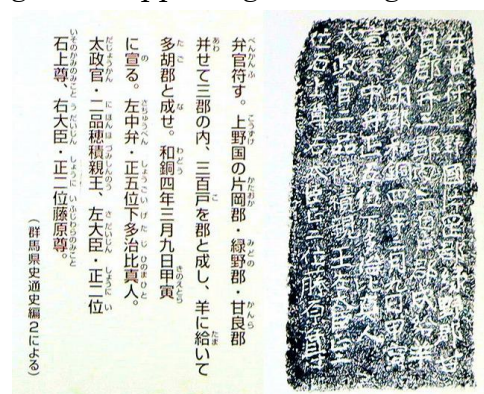 弁官符上野国片岡郡緑野郡甘
良郡并三郡内三百戸郡成給羊
成多胡郡和銅四年三月九日甲寅
宣左中弁正五位下多治比真人
太政官二品穂積親王左太臣正二
位石上尊右太臣正二位藤原尊
弁官符す。上野国の片岡郡・緑野郡・甘良郡
并せて三郡の内、三百戸を郡と成し、羊に給いて
多胡郡と成せ。和銅四年三月九日甲寅
に宣る。左中弁・正五位下多治比真人。
太政官・二品穂積親王、左大臣・正二位
石上尊、右大臣・正二位藤原尊。
（群馬県史通史編2による）